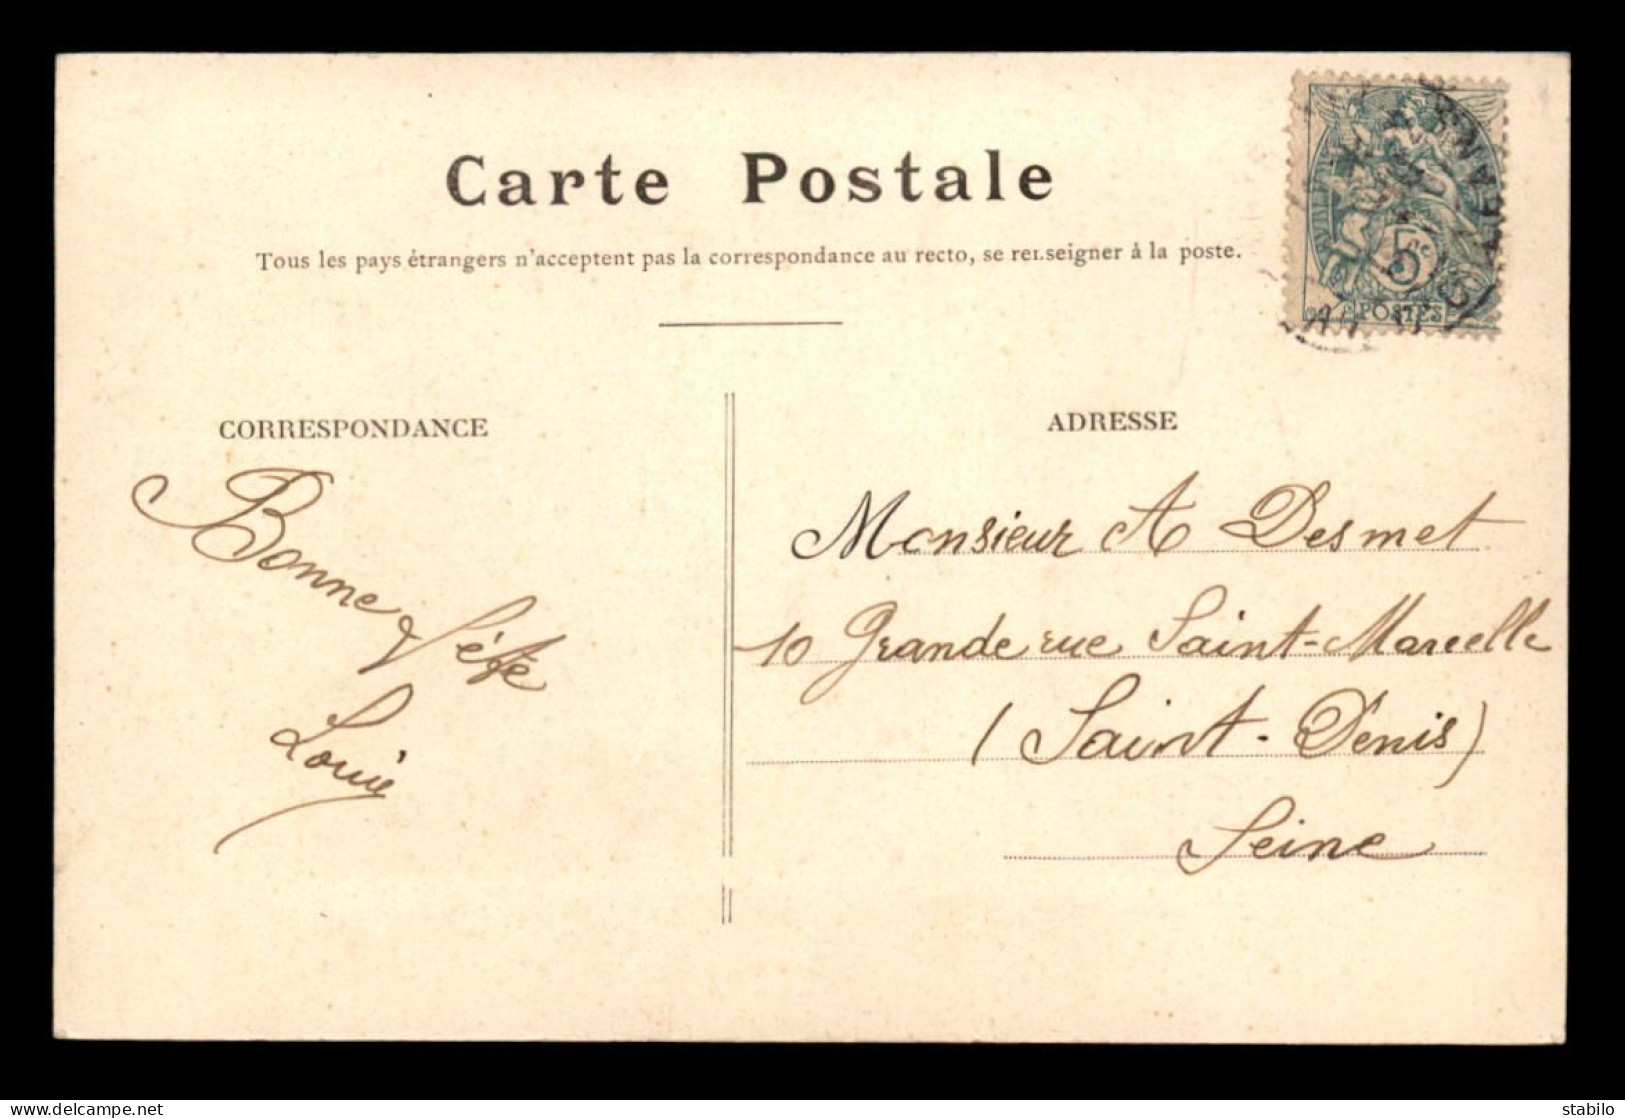 Carte Postale
Tous les pays étrangers n'acceptent pas la correspondance au recto, se renseigner à la poste.
5c
POSTES
CORRESPONDANCE
Bonne
fête
Louis
ADRESSE
Monsieur A Desmet
10 Grande rue Saint-Marcelle
(Saint-Denis)
Seine
delcampe.net
stabilo